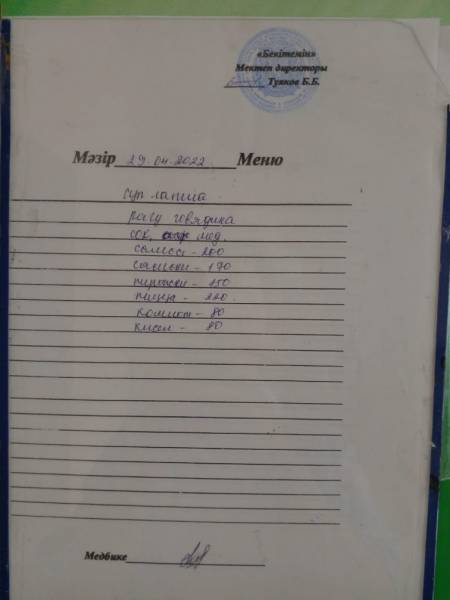 «Бекітемін»
Мектеп директоры
Туяков Б.Б.
Мәзір 29.04.2022 Меню
суп лапша
рагу говядина
сок, мед.
самсы - 200
сычники - 170
пирожки - 150
пицца - 220
компот - 80
кисел - 80
Медбике